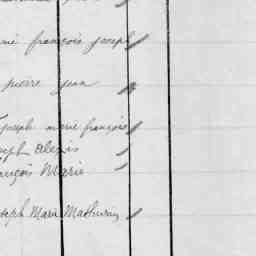 né françois joseph
pierre jean
joseph marie françois
seph alexis
ançois Marie
oseph Marie Mathurin